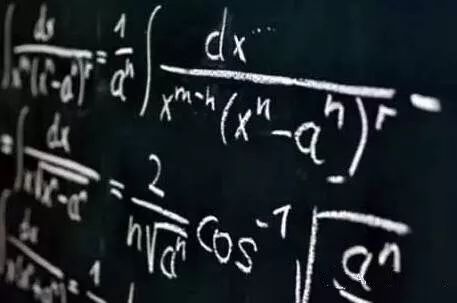 ∫ dx / x^m(x^n-a^n)^r = 1/a^n ∫ dx / x^{m-n}(x^n-a^n)^r -
= ∫ dx / x√x^n-a^n = 2 / n√a^n cos^-1 √a^n
∫ dx